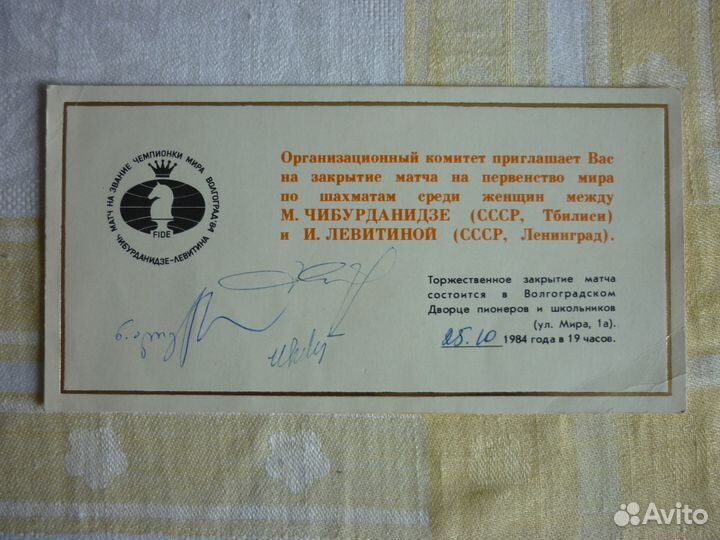 МАТЧ НА ЗВАНИЕ ЧЕМПИОНКИ МИРА ВОЛГОГРАД'84
ЧИБУРДАНИДЗЕ-ЛЕВИТИНА
FIDE
Организационный комитет приглашает Вас
на закрытие матча на первенство мира
по шахматам среди женщин между
М. ЧИБУРДАНИДЗЕ (СССР, Тбилиси)
и И. ЛЕВИТИНОЙ (СССР, Ленинград).
Торжественное закрытие матча
состоится в Волгоградском
Дворце пионеров и школьников
(ул. Мира, 1а).
25.10 1984 года в 19 часов.
Avito